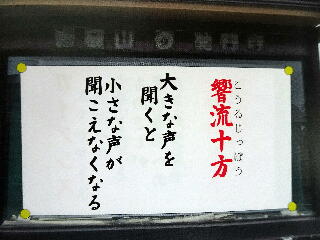 響流十方
こうるじっぽう
大きな声を
聞くと
小さな声が
聞こえなくなる